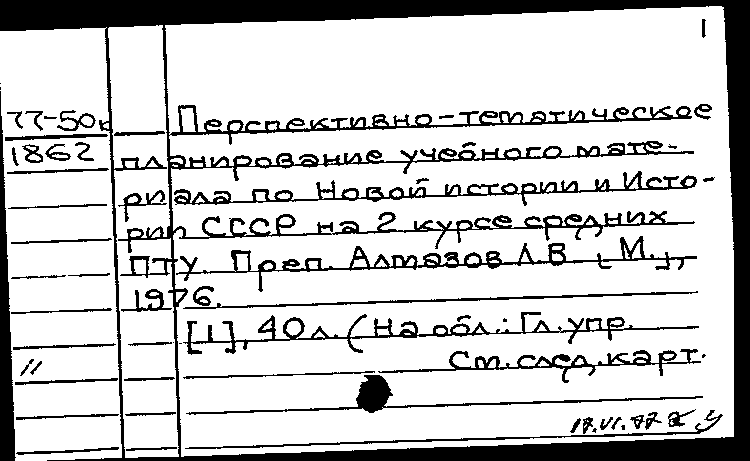 1
77-50к Перспективно-тематическое
1862 планирование учебного мате-
риала по Новой истории и Исто-
рии СССР на 2 курсе средних
ПТУ. Преп. Алмазов Л.В. [М.],
1976.
[1], 40 л. (На обл.: Гл. упр.
См. след. карт.
17.VI.77